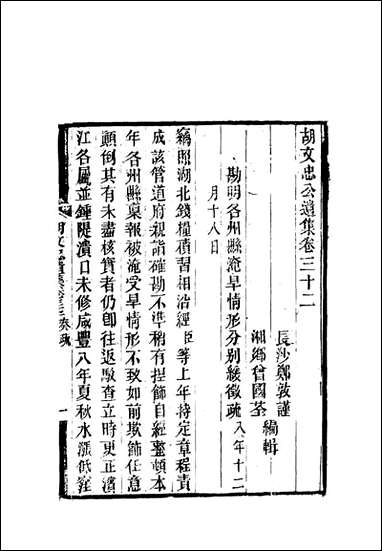 胡文忠公遺集卷三十二
長沙鄭敦謹
湘鄉曾國荃
編輯
勘明各州縣淹旱情形分別緩徵疏 八年十二
月十八日
竊照湖北錢糧積習相沿經臣等上年特定章程責
成該管道府親詣確勘不準稍有捏飾自經整頓本
年各州縣稟報被淹受旱情形不致如前欺飾任意
顛倒其有未盡核實者仍卽往返駁查立時更正濱
江各屬並鍾隄潰口未修咸豐八年夏秋水漲低窪